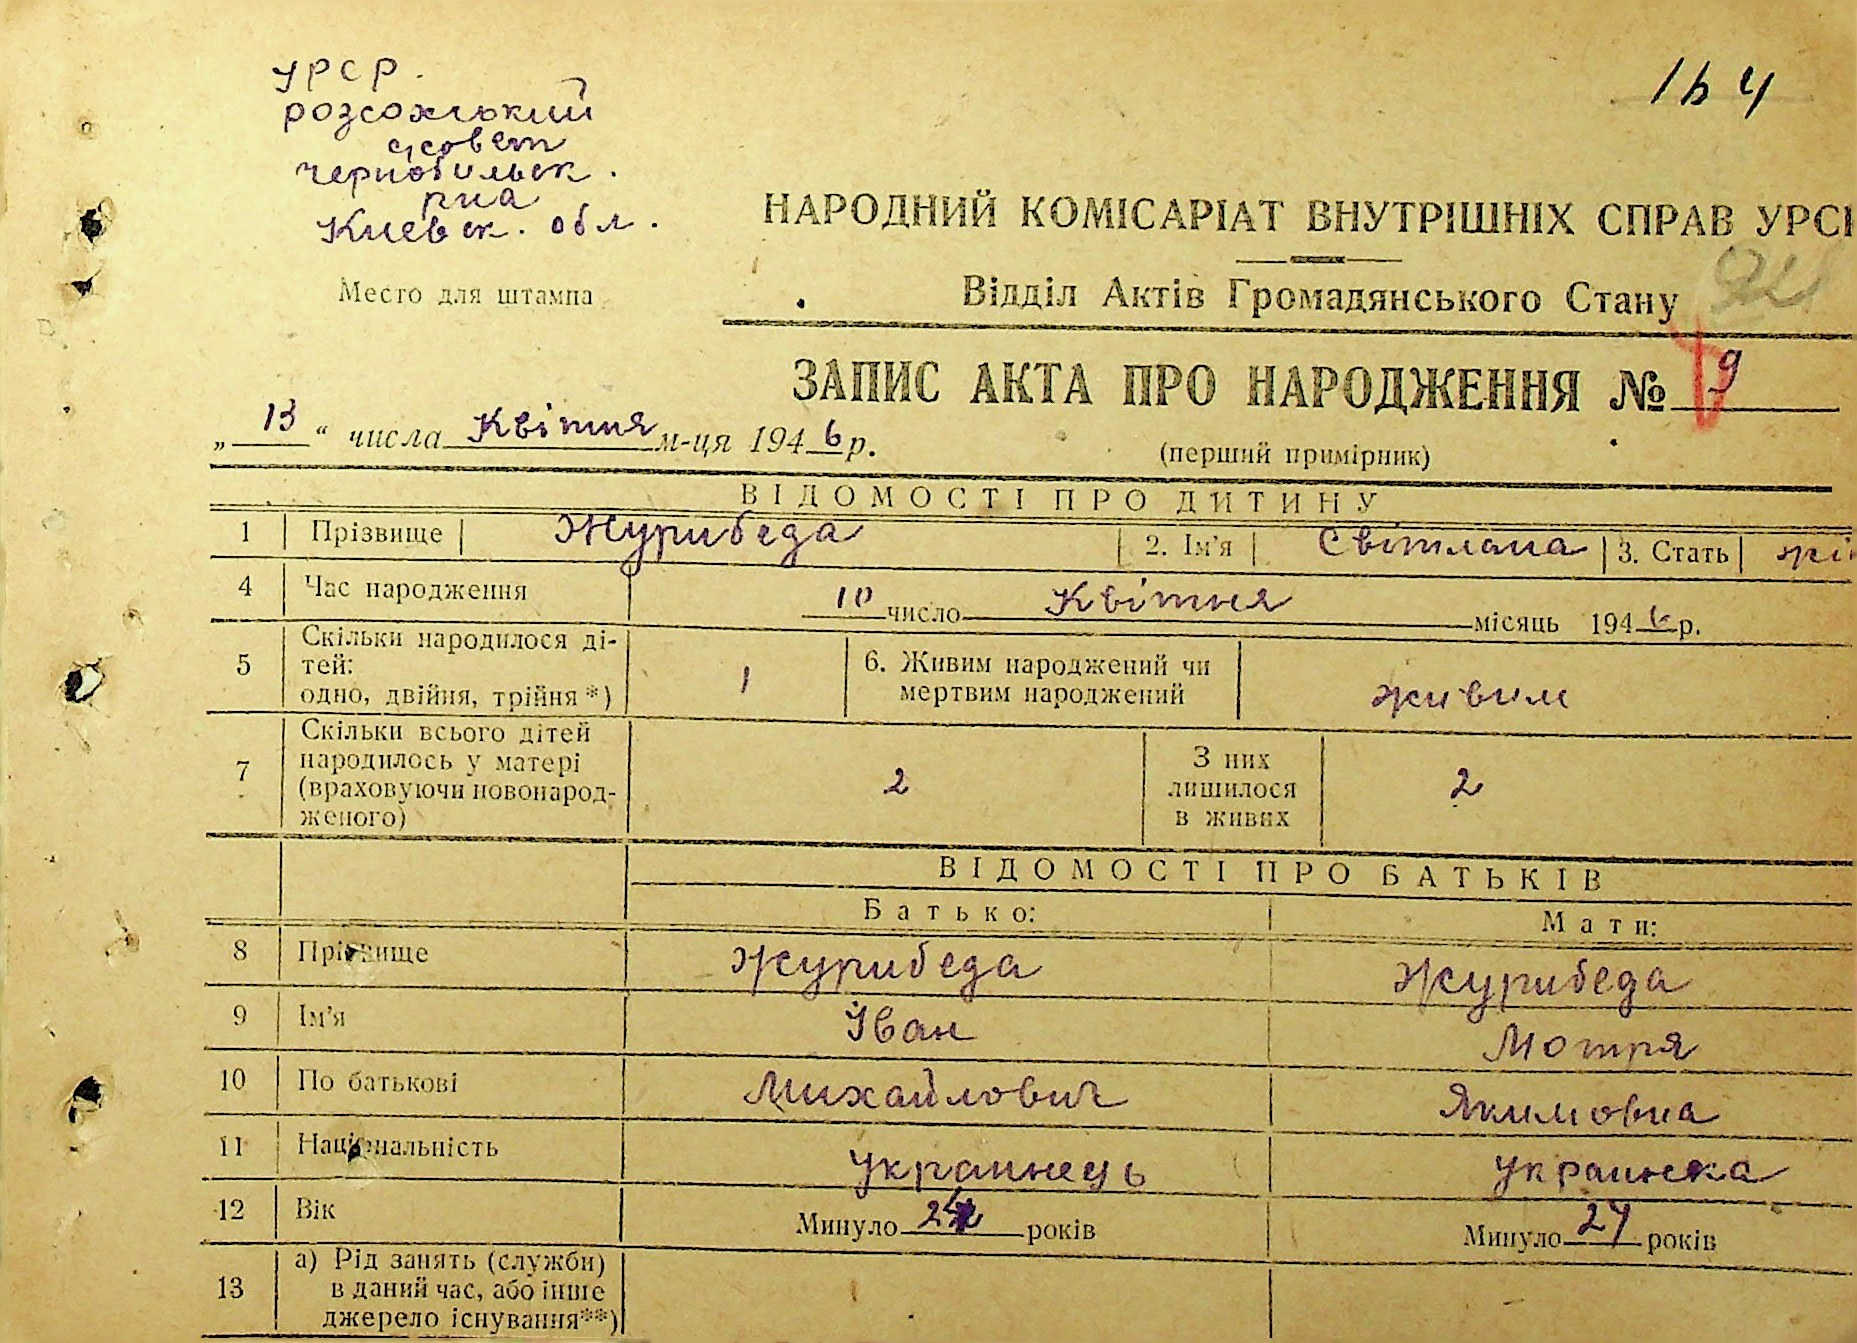 УРСР.
розсохський
с/совет
чернобильск.
р-на
Киевск. обл.
Место для штампа
НАРОДНИЙ КОМІСАРІАТ ВНУТРІШНІХ СПРАВ УРС
Відділ Актів Громадянського Стану
ЗАПИС АКТА ПРО НАРОДЖЕННЯ № 9
„ 13 “ числа Квітня м-ця 1946 р.
(перший примірник)
ВІДОМОСТІ ПРО ДИТИНУ
1 Прізвище Журибеда 2. Ім'я Світлана 3. Стать жі
4 Час народження 10 число Квітня місяць 1946 р.
5 Скільки народилося ді-
тей:
одно, двійня, трійня *) 1
6. Живим народжений чи
мертвим народжений живим
7 Скільки всього дітей
народилось у матері
(враховуючи новонарод-
женого) 2
З них
лишилося
в живих 2
ВІДОМОСТІ ПРО БАТЬКІВ
Батько: Мати:
8 Прізвище Журибеда Журибеда
9 Ім'я Іван Мотря
10 По батькові Михайлович Якимовна
11 Національність украинець украинка
12 Вік Минуло років Минуло 24 років
13 а) Рід занять (служби)
в даний час, або інше
джерело існування**)